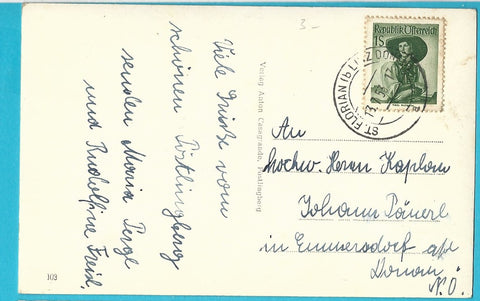 Viele Grüße vom
schönen Pöstlingberg
senden Maria
und Rudolfine
3-
Verlag Anton Casagrande, Pöstlingberg
Republik Österreich
1S
ST. FLORIAN b. LINZ
An
hochw. Herrn Kaplan
Johann
in Emmersdorf a/d
Donau
N.Ö.
103